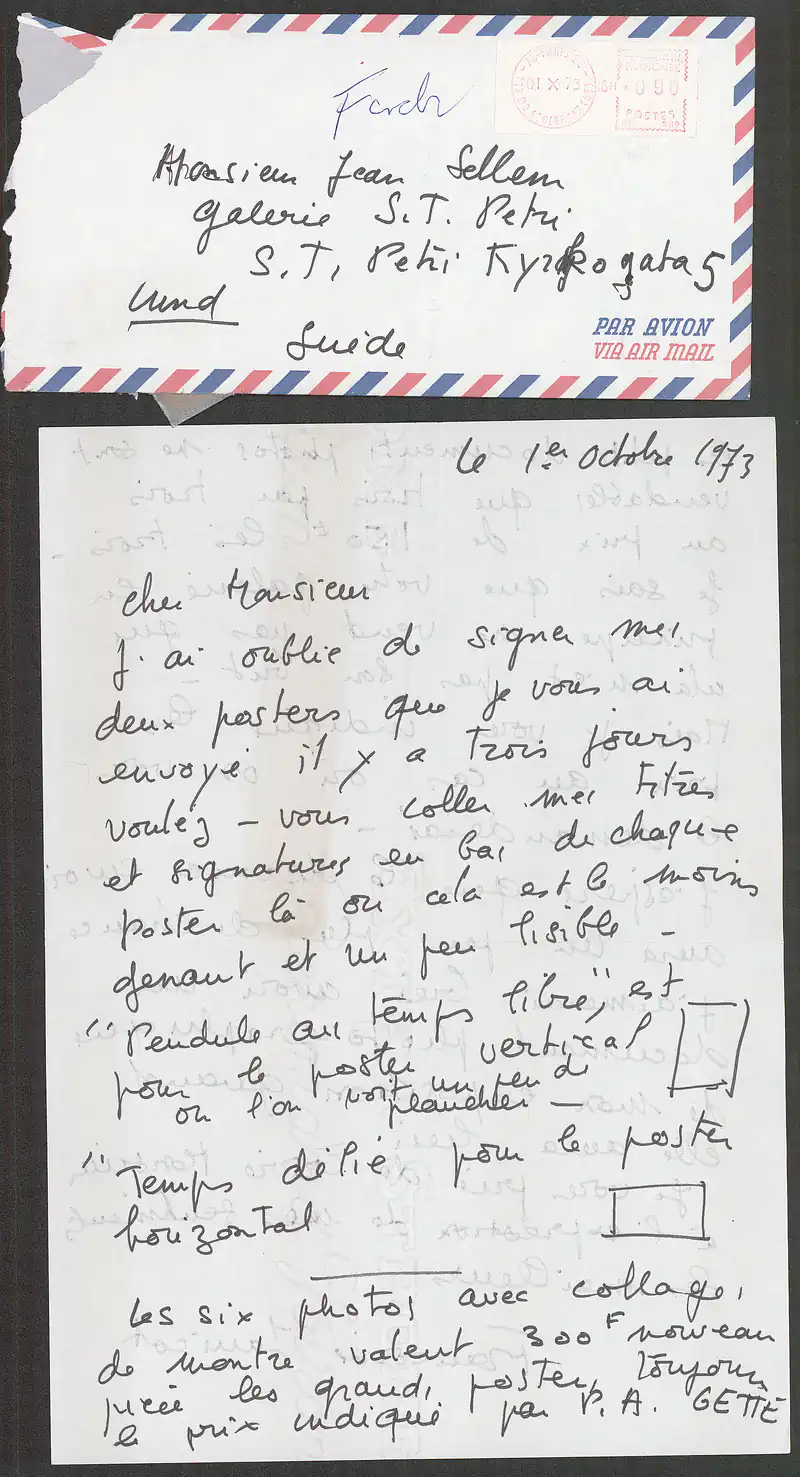 01 X 73
0 90
POSTES
Monsieur Jean Sellem
Galerie S.T. Petri
S.T. Petri Kyrkogata 5
Lund
Suède
PAR AVION
VIA AIR MAIL
Le 1er Octobre 1973
Cher Monsieur
J'ai oublié de signer mes
deux posters que je vous ai
envoyé il y a trois jours
voulez-vous coller mes titres
et signatures en bas de chaque
poster là où cela est le moins
genant et un peu lisible -
"Pendule au temps libre", est
pour le poster vertical
où l'on voit un peu de
plancher -
"Temps délié, pour le poster
horizontal
Les six photos avec collages
de montre valent 300F nouveau
pièce les grands posters, toujours
le prix indiqué par P.A. GETTE